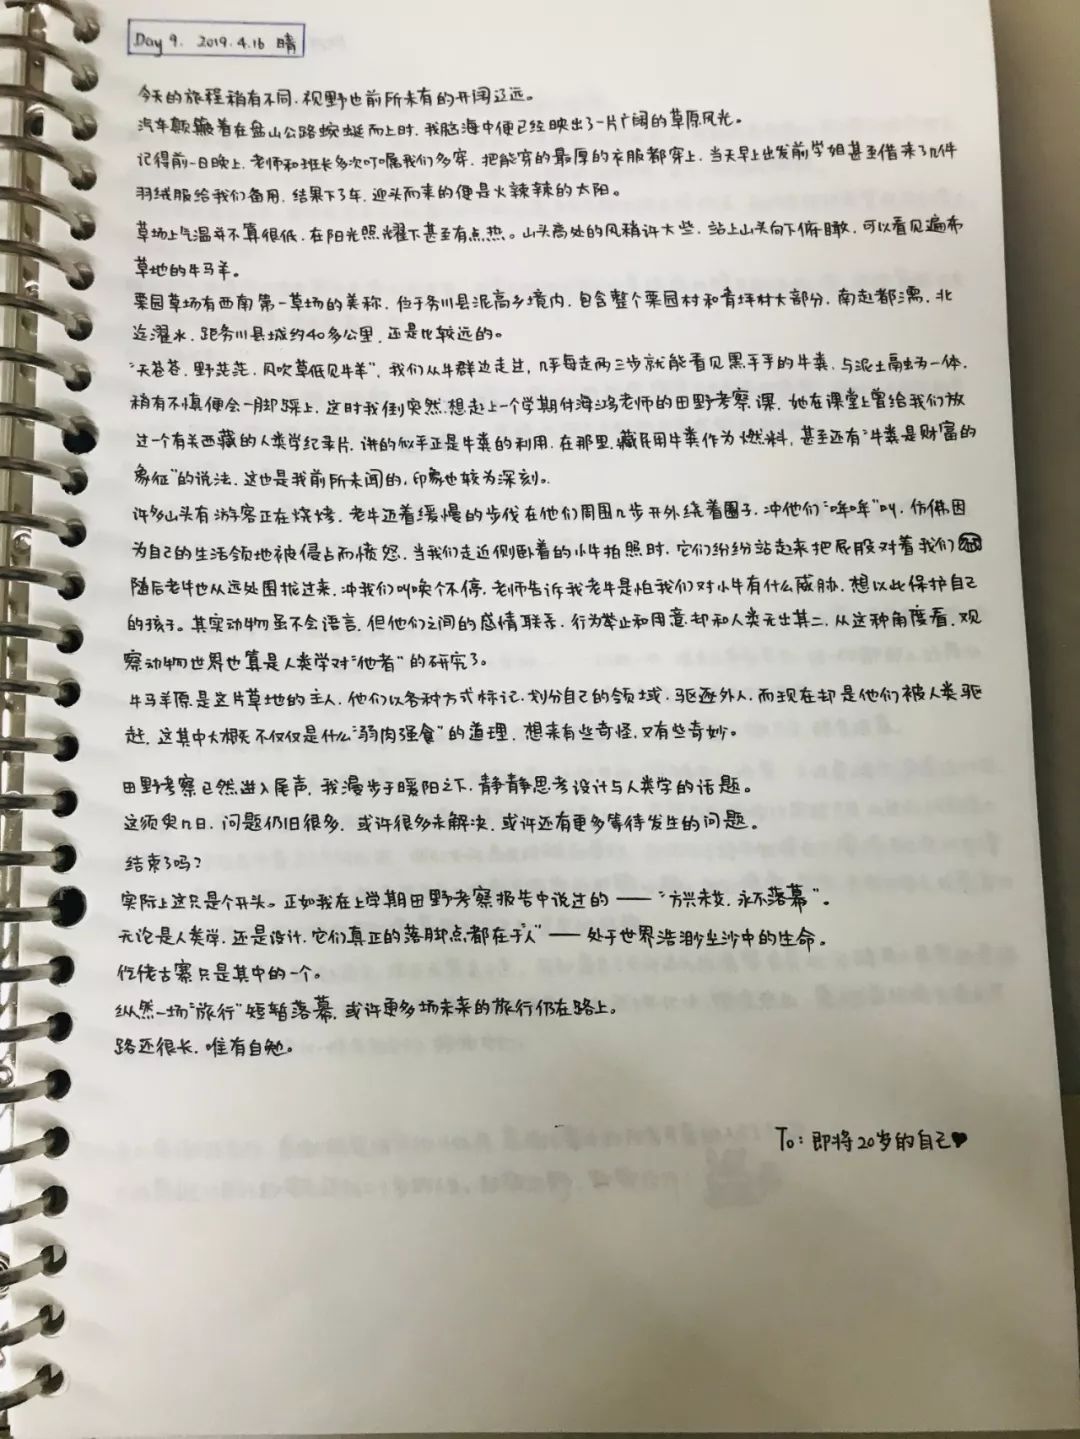 Day 9. 2019.4.16 晴
今天的旅程稍有不同.视野也前所未有的开阔辽远。
汽车颠簸着在盘山公路蜿蜒而上时.我脑海中便已经映出了一片广阔的草原风光。
记得前一日晚上.老师和班长多次叮嘱我们多穿.把能穿的最厚的衣服都穿上.当天早上出发前学姐甚至借来了几件
羽绒服给我们备用.结果下了车.迎头而来的便是火辣辣的太阳。
草场上气温并不算很低.在阳光照耀下甚至有点热。山头高处的风稍许大些.站上山头向下俯瞰.可以看见遍布
草地的牛马羊。
栗园草场有西南第一草场的美称.位于务川县泥高乡境内.包含整个栗园村和青坪村大部分.南起都濡.北
迄濯水.距务川县城约40多公里.还是比较远的。
“天苍苍.野茫茫.风吹草低见牛羊”.我们从牛群边走过,几乎每走两三步就能看见黑乎乎的牛粪.与泥土融为一体.
稍有不慎便会一脚踩上.这时我倒突然想起上一个学期付海鸿老师的田野考察课.她在课堂上曾给我们放
过一个有关西藏的人类学纪录片.讲的似乎正是牛粪的利用.在那里.藏民用牛粪作为燃料,甚至还有“牛粪是财富的
象征”的说法.这也是我前所未闻的,印象也较为深刻。
许多山头有游客正在烧烤.老牛迈着缓慢的步伐在他们周围几步开外绕着圈子.冲他们“哞哞”叫.仿佛因
为自己的生活领地被侵占而愤怒.当我们走近侧卧着的小牛拍照时.它们纷纷站起来把屁股对着我们
随后老牛也从远处围拢过来.冲我们叫唤个不停.老师告诉我老牛是怕我们对小牛有什么威胁.想以此保护自己
的孩子。其实动物虽不会语言.但他们之间的感情联系.行为举止和用意却和人类无出其二.从这种角度看.观
察动物世界也算是人类学对“他者”的研究了。
牛马羊原是这片草地的主人.他们以各种方式标记.划分自己的领域.驱逐外人.而现在却是他们被人类驱
赶.这其中大概不仅仅是什么“弱肉强食”的道理.想来有些奇怪.又有些奇妙。
田野考察已然进入尾声.我漫步于暖阳之下.静静思考设计与人类学的话题。
这须臾几日.问题仍旧很多.或许很多未解决.或许还有更多等待发生的问题。
结束了吗?
实际上这只是个开头。正如我在上学期田野考察报告中说过的——“方兴未艾.永不落幕”。
无论是人类学.还是设计.它们真正的落脚点都在于“人”——处于世界浩渺尘沙中的生命。
仡佬古寨只是其中的一个。
纵然一场“旅行”短暂落幕.或许更多场未来的旅行仍在路上。
路还很长.唯有自勉。
To:即将20岁的自己♥